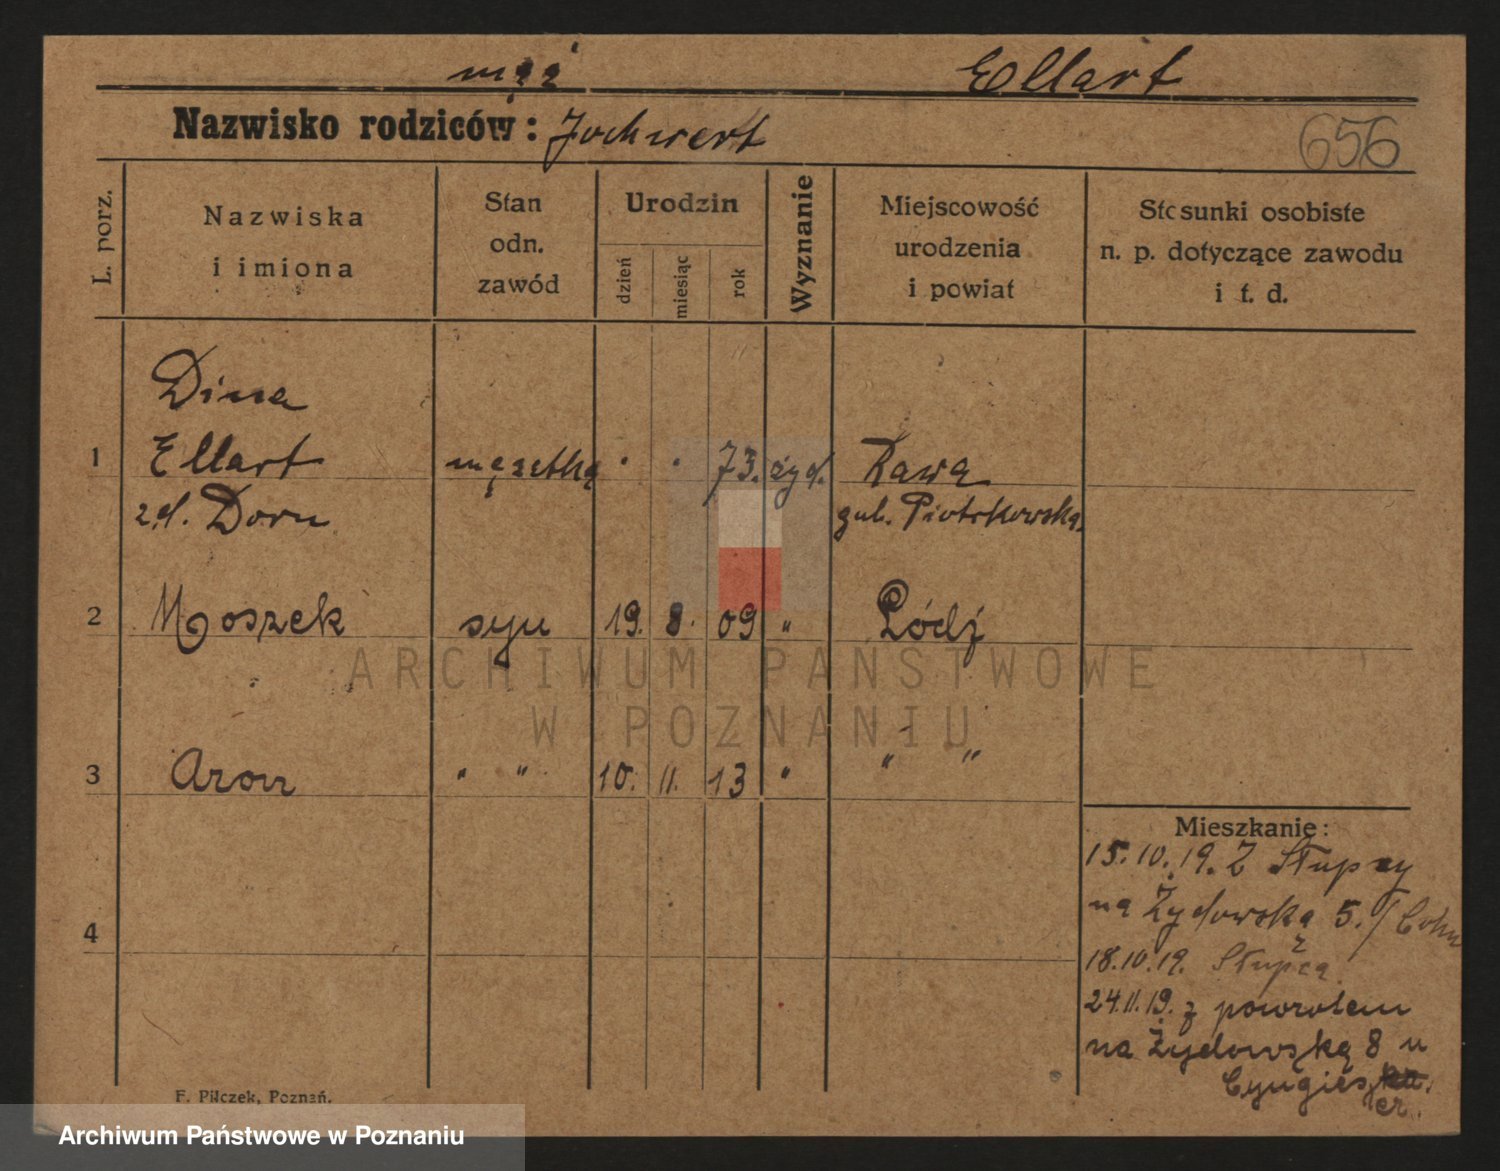 mąż Ellart
Nazwisko rodziców: Jochwert
656
L. porz.
Nazwiska
i imiona
Stan
odn.
zawód
Urodzin
dzień
miesiąc
rok
Wyznanie
Miejscowość
urodzenia
i powiat
Stosunki osobiste
n. p. dotyczące zawodu
i t. d.
Dina
1 Ellart mężatka . . 73. żyd. Rawa
z d. Dorn gub. Piotrkowska
2 Moszek syn 19. 8. 09 " Łódź
3 Aron " " 10. 11. 13 " " "
4
Mieszkanie:
15.10.19. Z Słupcy
na Żydowską 5./Cohn
18.10.19. Słupca
24.11.19. z powrotem
na Żydowską 8 u
er.
F. Pilczek, Poznań.
ARCHIWUM PAŃSTWOWE
W POZNANIU
Archiwum Państwowe w Poznaniu